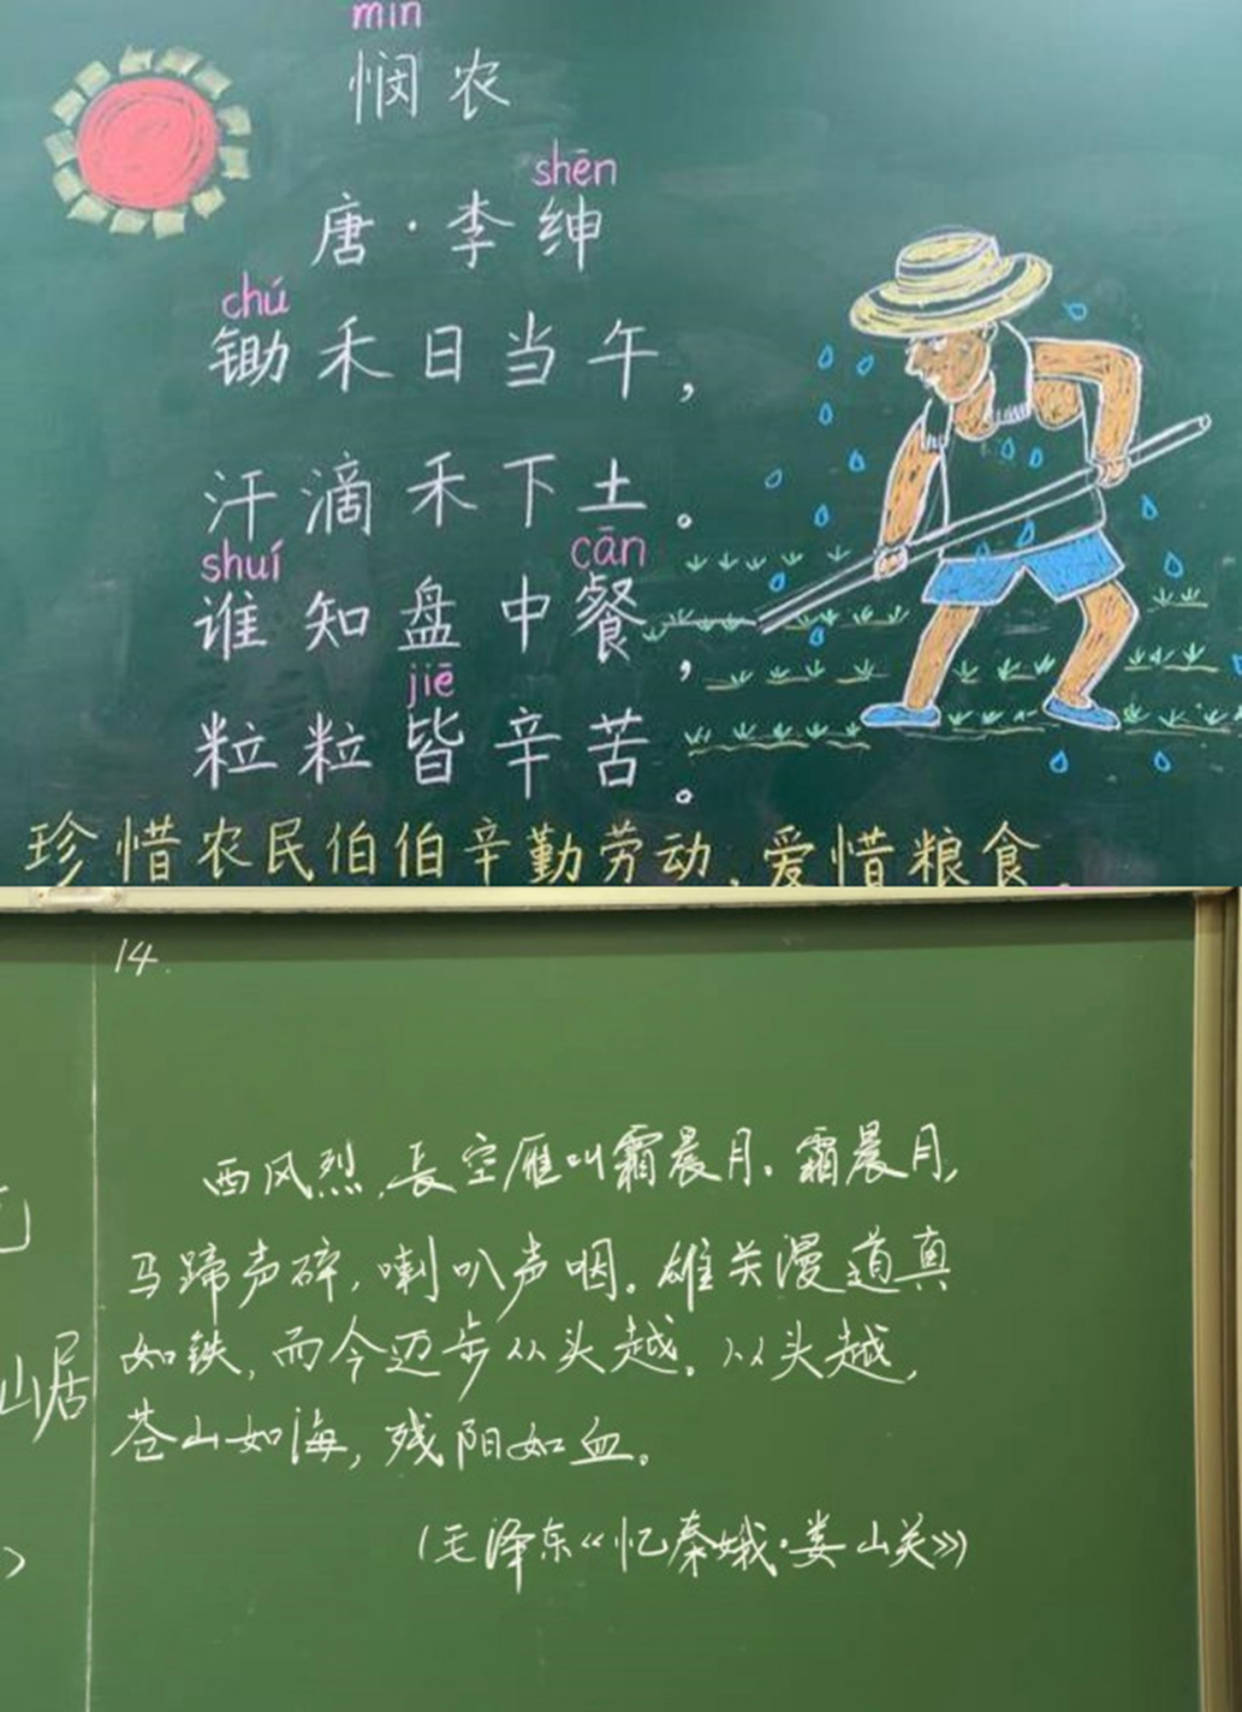 mǐn
悯农
shēn
唐·李绅
chú
锄禾日当午，
汗滴禾下土。
shuí cān
谁知盘中餐，
jiē
粒粒皆辛苦。
珍惜农民伯伯辛勤劳动、爱惜粮食.
14.
西风烈,長空雁叫霜晨月.霜晨月,
马蹄声碎,喇叭声咽。雄关漫道真
如铁,而今迈步从头越。从头越,
苍山如海,残阳如血。
(毛泽东《忆秦娥·娄山关》)
山居